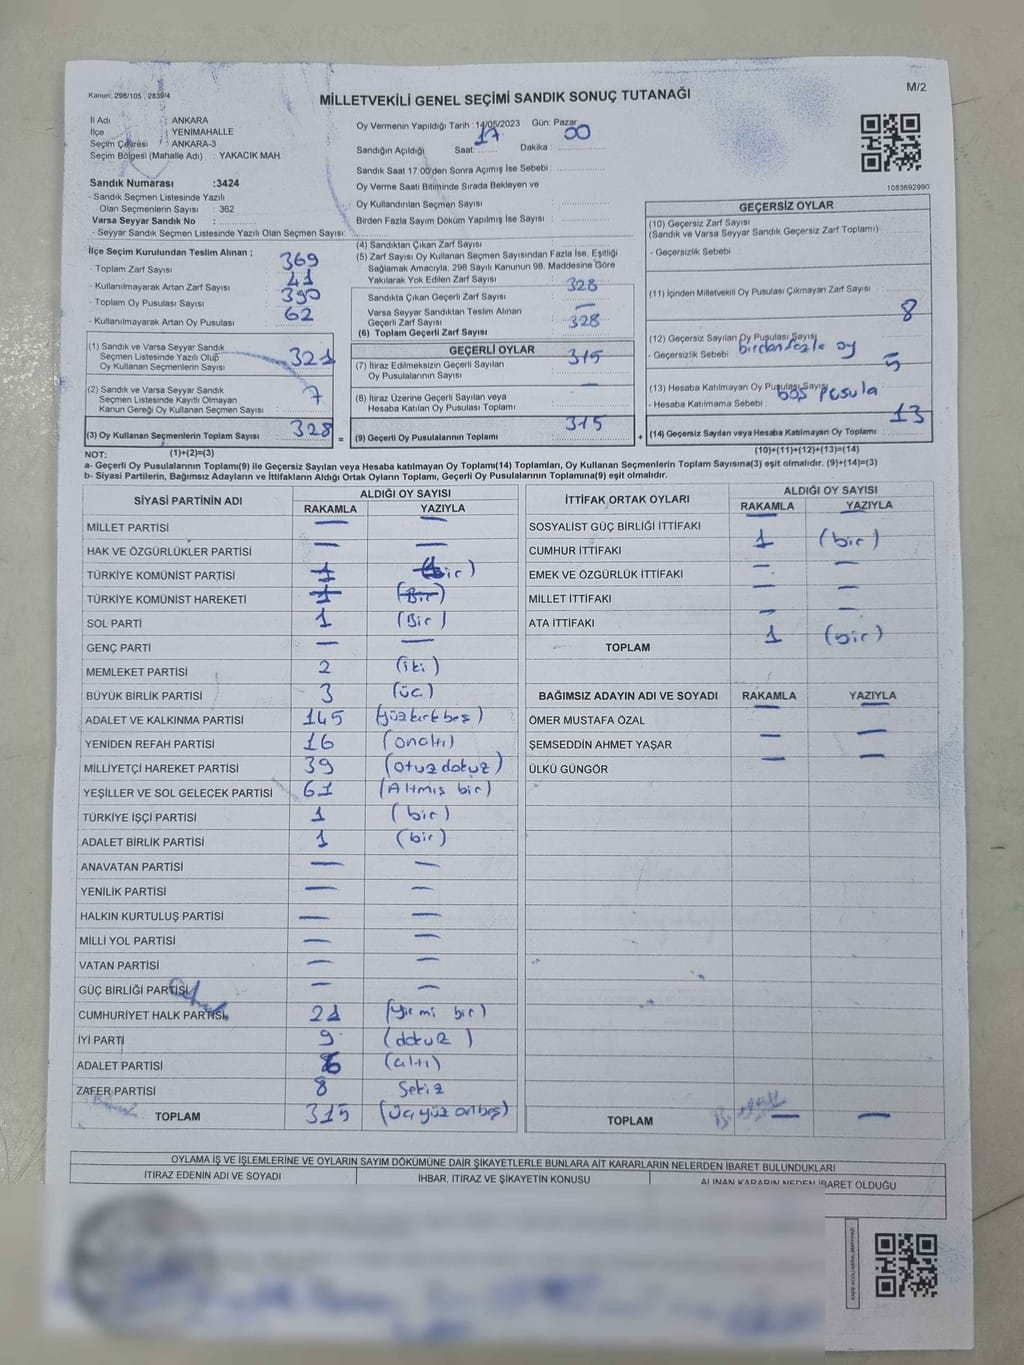 Kanun: 298/105 , 2839/4
M/2
MİLLETVEKİLİ GENEL SEÇİMİ SANDIK SONUÇ TUTANAĞI
İl Adı : ANKARA
İlçe : YENİMAHALLE
Seçim Çevresi : ANKARA-3
Seçim Bölgesi (Mahalle Adı) : YAKACIK MAH.
Sandık Numarası :3424
- Sandık Seçmen Listesinde Yazılı
Olan Seçmenlerin Sayısı : 362
Varsa Seyyar Sandık No :
- Seyyar Sandık Seçmen Listesinde Yazılı Olan Seçmen Sayısı:
Oy Vermenin Yapıldığı Tarih : 14/05/2023 Gün: Pazar
Sandığın Açıldığı Saat: 17 Dakika : 00
Sandık Saat 17:00'den Sonra Açımış İse Sebebi :
Oy Verme Saati Bitiminde Sırada Bekleyen ve
Oy Kullandırılan Seçmen Sayısı :
Birden Fazla Sayım Döküm Yapılmış İse Sayısı :
1083692990
İlçe Seçim Kurulundan Teslim Alınan ;
- Toplam Zarf Sayısı : 369
- Kullanılmayarak Artan Zarf Sayısı : 41
- Toplam Oy Pusulası Sayısı : 390
- Kullanılmayarak Artan Oy Pusulası : 62
(1) Sandık ve Varsa Seyyar Sandık
Seçmen Listesinde Yazılı Olup
Oy Kullanan Seçmenlerin Sayısı : 321
(2) Sandık ve Varsa Seyyar Sandık
Seçmen Listesinde Kayıtlı Olmayan
Kanun Gereği Oy Kullanan Seçmen Sayısı : 7
(3) Oy Kullanan Seçmenlerin Toplam Sayısı : 328
(4) Sandıktan Çıkan Zarf Sayısı :
(5) Zarf Sayısı Oy Kullanan Seçmen Sayısından Fazla İse, Eşitliği
Sağlamak Amacıyla, 298 Sayılı Kanunun 98. Maddesine Göre
Yakılarak Yok Edilen Zarf Sayısı :
Sandıkta Çıkan Geçerli Zarf Sayısı : 328
Varsa Seyyar Sandıktan Teslim Alınan
Geçerli Zarf Sayısı : —
(6) Toplam Geçerli Zarf Sayısı : 328
GEÇERLİ OYLAR
(7) İtiraz Edilmeksizin Geçerli Sayılan
Oy Pusulalarının Sayısı : 315
(8) İtiraz Üzerine Geçerli Sayılan veya
Hesaba Katılan Oy Pusulası Toplamı : —
= (9) Geçerli Oy Pusulalarının Toplamı : 315
GEÇERSİZ OYLAR
(10) Geçersiz Zarf Sayısı
(Sandık ve Varsa Seyyar Sandık Geçersiz Zarf Toplamı) :
- Geçersizlik Sebebi :
(11) İçinden Milletvekili Oy Pusulası Çıkmayan Zarf Sayısı :
(12) Geçersiz Sayılan Oy Pusulası Sayısı : 8
- Geçersizlik Sebebi : birden fazla oy
(13) Hesaba Katılmayan Oy Pusulası Sayısı : 5
- Hesaba Katılmama Sebebi : boş pusula
+ (14) Geçersiz Sayılan veya Hesaba Katılmayan Oy Toplamı : 13
NOT: (1)+(2)=(3) (10)+(11)+(12)+(13)=(14)
a- Geçerli Oy Pusulalarının Toplamı(9) ile Geçersiz Sayılan veya Hesaba katılmayan Oy Toplamı(14) Toplamları, Oy Kullanan Seçmenlerin Toplam Sayısına(3) eşit olmalıdır. (9)+(14)=(3)
b- Siyasi Partilerin, Bağımsız Adayların ve İttifakların Aldığı Ortak Oyların Toplamı, Geçerli Oy Pusulalarının Toplamına(9) eşit olmalıdır.
SİYASİ PARTİNİN ADI ALDIĞI OY SAYISI
RAKAMLA YAZIYLA
MİLLET PARTİSİ — —
HAK VE ÖZGÜRLÜKLER PARTİSİ — —
TÜRKİYE KOMÜNİST PARTİSİ 1 (bir)
TÜRKİYE KOMÜNİST HAREKETİ 1 (Bir)
SOL PARTİ 1 (Bir)
GENÇ PARTİ — —
MEMLEKET PARTİSİ 2 (iki)
BÜYÜK BİRLİK PARTİSİ 3 (üç)
ADALET VE KALKINMA PARTİSİ 145 (yüzkırkbeş)
YENİDEN REFAH PARTİSİ 16 (onaltı)
MİLLİYETÇİ HAREKET PARTİSİ 39 (otuzdokuz)
YEŞİLLER VE SOL GELECEK PARTİSİ 61 (Altmış bir)
TÜRKİYE İŞÇİ PARTİSİ 1 (bir)
ADALET BİRLİK PARTİSİ 1 (bir)
ANAVATAN PARTİSİ — —
YENİLİK PARTİSİ — —
HALKIN KURTULUŞ PARTİSİ — —
MİLLİ YOL PARTİSİ — —
VATAN PARTİSİ — —
GÜÇ BİRLİĞİ PARTİSİ — —
CUMHURİYET HALK PARTİSİ 21 (yirmi bir)
İYİ PARTİ 9 (dokuz)
ADALET PARTİSİ 6 (altı)
ZAFER PARTİSİ 8 Sekiz
TOPLAM 315 (üçyüz onbeş)
İTTİFAK ORTAK OYLARI ALDIĞI OY SAYISI
RAKAMLA YAZIYLA
SOSYALİST GÜÇ BİRLİĞİ İTTİFAKI — —
CUMHUR İTTİFAKI 1 (bir)
EMEK VE ÖZGÜRLÜK İTTİFAKI — —
MİLLET İTTİFAKI — —
ATA İTTİFAKI — —
TOPLAM 1 (bir)
BAĞIMSIZ ADAYIN ADI VE SOYADI RAKAMLA YAZIYLA
ÖMER MUSTAFA ÖZAL — —
ŞEMSEDDİN AHMET YAŞAR — —
ÜLKÜ GÜNGÖR — —
TOPLAM — —
OYLAMA İŞ VE İŞLEMLERİNE VE OYLARIN SAYIM DÖKÜMÜNE DAİR ŞİKAYETLERLE BUNLARA AİT KARARLARIN NELERDEN İBARET BULUNDUKLARI
İTİRAZ EDENİN ADI VE SOYADI İHBAR, İTİRAZ VE ŞİKAYETİN KONUSU ALINAN KARARIN NEDEN İBARET OLDUĞU